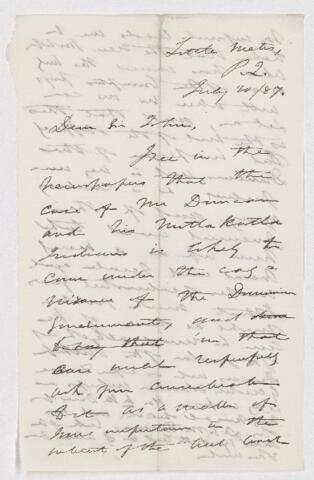 Little Metis,
P.Q.
July 20/87.
Dear Sir John,
I see in the
newspapers that the
case of Mr Duncan
and his Metlakatla
Indians is likely to
come under the cog-
nizance of the Dominion
Government, and
being that in that
case must respectfully
ask your consideration
of it as a matter of
importance in the
interest of the